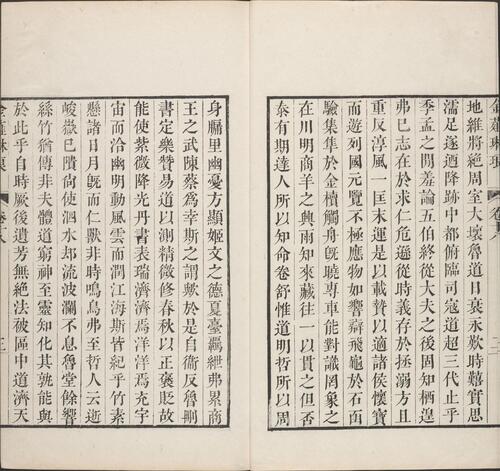 金薤琳琅
地維將絶周室大壞魯道日衰永歎時難實思
濡足遂迺降跡中都俯臨司寇道超三代止乎
季孟之閒羞論五伯終從大夫之後固知栖遑
弗已志在於求仁危遜從時義存於拯溺方且
重反淳風一匡末運是以載贄以適諸侯懷寶
而遊列國元覽不極應物如響辯飛龜於石函
驗集隼於金櫝觸舟旣曉專車能對識罔象之
在川明商羊之興雨知來藏往一以貫之但否
泰有期達人所以知命卷舒惟道明哲所以周
身牖里幽憂方顯姬文之德夏臺羈紲弗累商
王之武陳蔡爲幸斯之謂歟於是自衛反魯刪
書定樂贊易道以測精微修春秋以正褒貶故
能使紫微降光丹書表瑞濟濟焉洋洋焉充宇
宙而洽幽明動風雲而潤江海斯皆紀乎竹素
懸諸日月旣而仁獸非時鳴鳥弗至哲人云逝
峻嶽已隤尚使泗水却流波瀾不息魯堂餘響
絲竹猶傳非夫體道窮神至靈知化其孰能與
於此乎自時厥後遺芳無絶法被區中道濟天
金薤琳琅